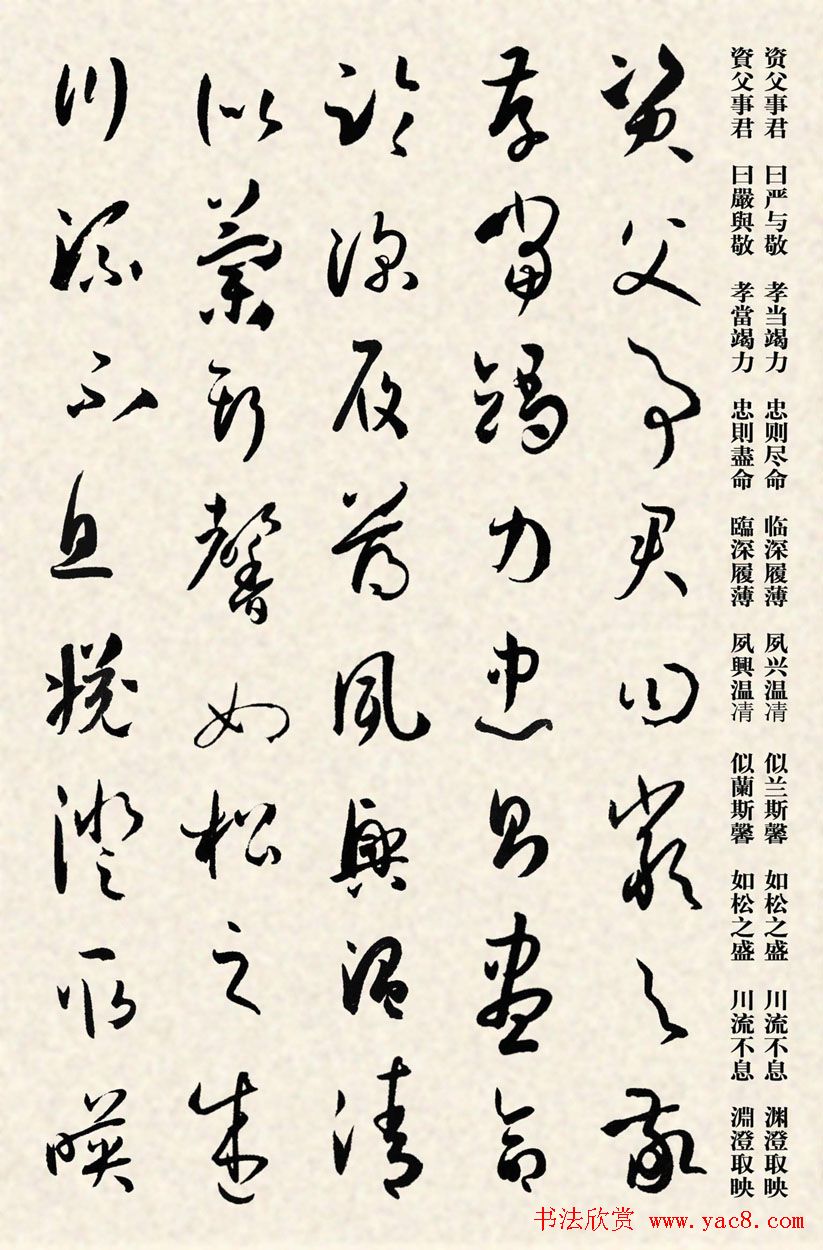 资父事君 曰严与敬 孝当竭力 忠则尽命 临深履薄 夙兴温凊 似兰斯馨 如松之盛 川流不息 渊澄取映
資父事君 曰嚴與敬 孝當竭力 忠則盡命 臨深履薄 夙興温凊 似蘭斯馨 如松之盛 川流不息 淵澄取映
資父事君曰嚴與敬
孝當竭力忠則盡命
臨深履薄夙興温清
似蘭斯馨如松之盛
川流不息淵澄取暎
书法欣赏 www.yac8.com